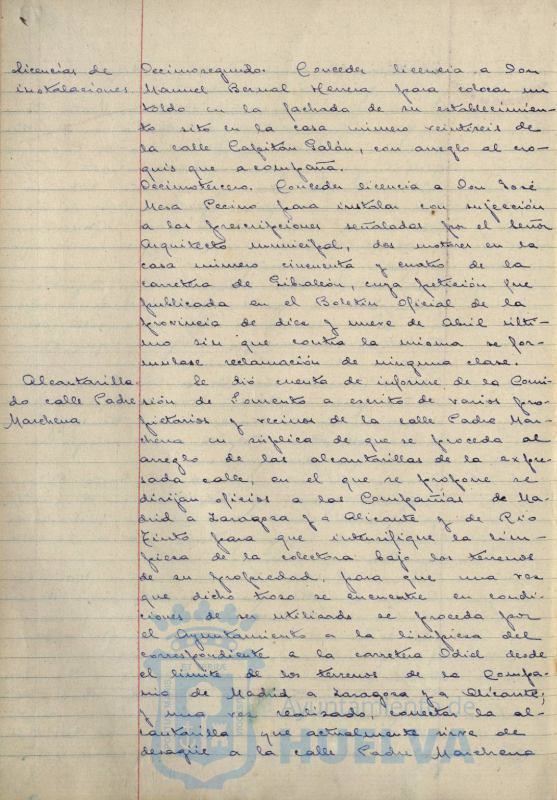 licencias de
instalaciones
Decimosegundo. Conceder licencia a Don
Manuel Bernal Herrera para colocar un
toldo en la fachada de su establecimien-
to sito en la casa número veintiseis de
la calle Capitán Galán, con arreglo al cro-
quis que acompaña.
Decimotercero. Conceder licencia a Don José
Mesa Pecino para instalar con sujección
a las prescripciones señaladas por el Señor
Arquitecto municipal, dos motores en la
casa número cincuenta y cuatro de la
carretera de Gibraleón, cuya petición fue
publicada en el Boletin Oficial de la
provincia de diez y nueve de Abril últi-
mo sin que contra la misma se for-
mulase reclamación de ninguna clase.
Alcantarilla-
do calle Padre
Marchena
Se dió cuenta de informe de la Comi-
sión de Fomento a escrito de varios pro-
pietarios y vecinos de la calle Padre Mar-
chena en súplica de que se proceda al
arreglo de las alcantarillas de la expre-
sada calle, en el que se propone se
dirijan oficios a las Compañías de Ma-
drid a Zaragoza y a Alicante y de Rio
Tinto para que intensifique la lim-
pieza de la colectora bajo los terrenos
de su propiedad, para que una vez
que dicho trozo se encuentre en condi-
ciones de ser utilizado se proceda por
el Ayuntamiento a la limpieza del
correspondiente a la carretera Odiel desde
el limite de los terrenos de la Compa-
ñia de Madrid a Zaragoza y a Alicante;
y una vez realizado, conectar la al-
cantarilla que actualmente sirve de
desagüe a la calle Padre Marchena
Ayuntamiento de
HUELVA